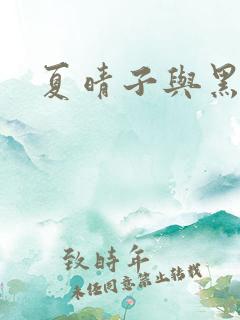 夏晴子與黑
致時年
未經同意禁止轉載